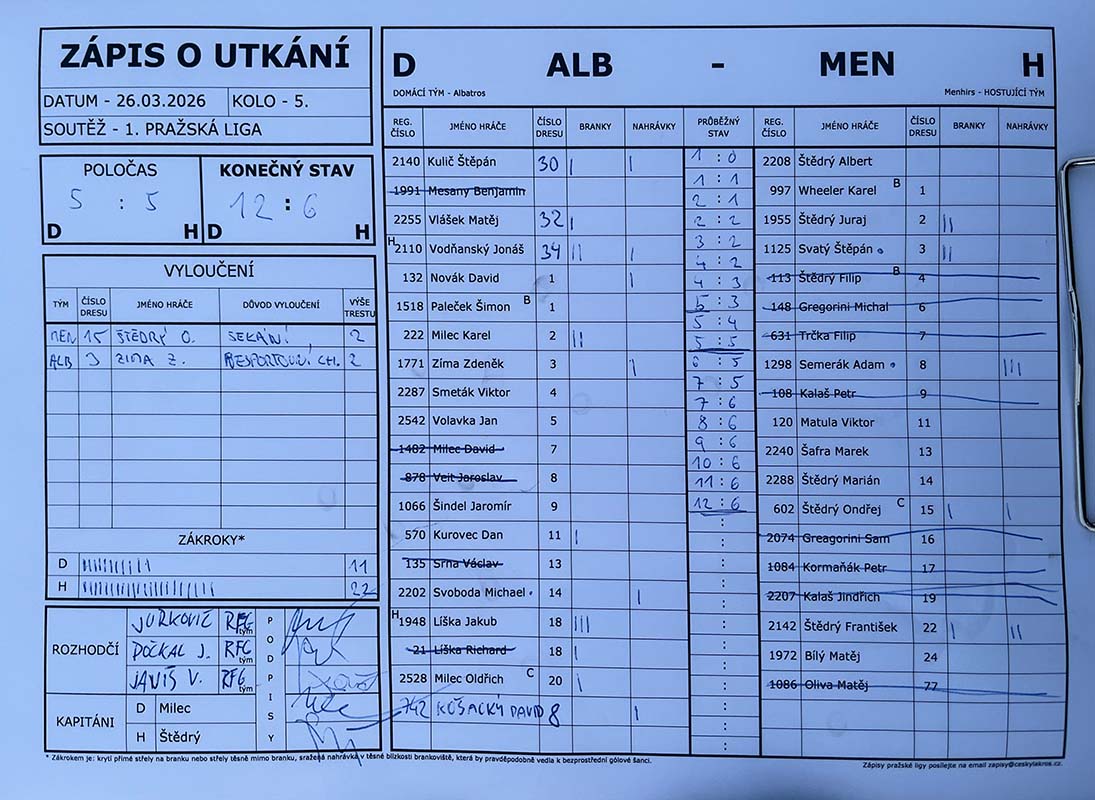 ZÁPIS O UTKÁNÍ
DATUM - 26.03.2026 KOLO - 5.
SOUTĚŽ - 1. PRAŽSKÁ LIGA
POLOČAS KONEČNÝ STAV
5 : 5 12 : 6
D H D H
VYLOUČENÍ
TÝM ČÍSLO DRESU JMÉNO HRÁČE DŮVOD VYLOUČENÍ VÝŠE TRESTU
MEN 15 ŠTĚDRÝ O. SEKÁNÍ 2
ALB 3 ZÍMA Z. NESPORTOVNÍ CH. 2
ZÁKROKY*
D 11
H 22
ROZHODČÍ
JURKOVIČ RFG tým
POČKAL J. RFC tým
JAVIŠ V. RFG tým
PODPISY
KAPITÁNI
D Milec
H Štědrý
D ALB - MEN H
DOMÁCÍ TÝM - Albatros Menhirs - HOSTUJÍCÍ TÝM
REG. ČÍSLO JMÉNO HRÁČE ČÍSLO DRESU BRANKY NAHRÁVKY PRŮBĚŽNÝ STAV REG. ČÍSLO JMÉNO HRÁČE ČÍSLO DRESU BRANKY NAHRÁVKY
2140 Kulič Štěpán 30 | |
1991 Mesany Benjamin
2255 Vlášek Matěj 32 |
H 2110 Vodňanský Jonáš 34 || |
132 Novák David 1 |
1518 Paleček Šimon B 1
222 Milec Karel 2 ||
1771 Zíma Zdeněk 3 |
2287 Smeták Viktor 4
2542 Volavka Jan 5
1482 Milec David 7
878 Veit Jaroslav 8
1066 Šindel Jaromír 9
570 Kurovec Dan 11 |
135 Srna Václav 13
2202 Svoboda Michael 14 |
H 1948 Líška Jakub 18 |||
21 Líška Richard 18 |
2528 Milec Oldřich C 20 |
742 KOŠACKÝ DAVID 8 |
1 : 0
1 : 1
2 : 1
2 : 2
3 : 2
4 : 2
4 : 3
5 : 3
5 : 4
5 : 5
6 : 5
7 : 5
7 : 6
8 : 6
9 : 6
10 : 6
11 : 6
12 : 6
2208 Štědrý Albert
997 Wheeler Karel B 1
1955 Štědrý Juraj 2 ||
1125 Svatý Štěpán 3 ||
113 Štědrý Filip B 4
148 Gregorini Michal 6
631 Trčka Filip 7
1298 Semerák Adam 8 |||
108 Kalaš Petr 9
120 Matula Viktor 11
2240 Šafra Marek 13
2288 Štědrý Marián 14
602 Štědrý Ondřej C 15 | |
2074 Greagorini Sam 16
1084 Kormaňák Petr 17
2207 Kalaš Jindřich 19
2142 Štědrý František 22 | ||
1972 Bílý Matěj 24
1086 Oliva Matěj 77
* Zákrokem je: krytí přímé střely na branku nebo střely těsně mimo branku, sražená nahrávka v těsné blízkosti brankoviště, která by pravděpodobně vedla k bezprostřední gólové šanci.
Zápisy pražské ligy posílejte na email zapisy@ceskylakros.cz.